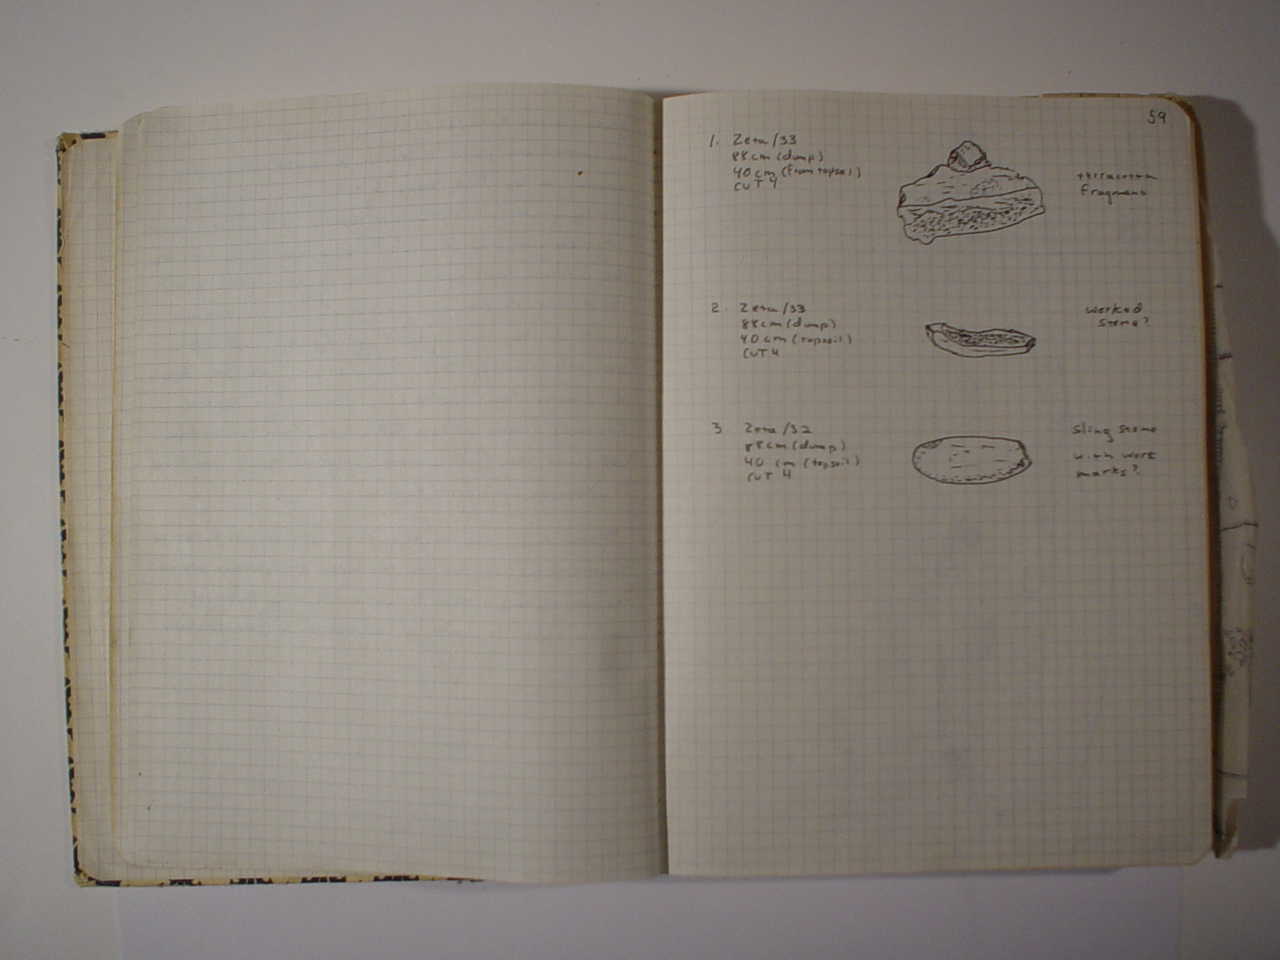 59
1. Zeta/33
88cm (dump)
40 cm (from topsoil)
CUT 4
terracotta
fragment
2. Zeta/33
88cm (dump)
40 cm (topsoil)
CUT 4
worked
stone?
3. Zeta/32
88cm (dump)
40 cm (topsoil)
CUT 4
sling stone
with work
marks?